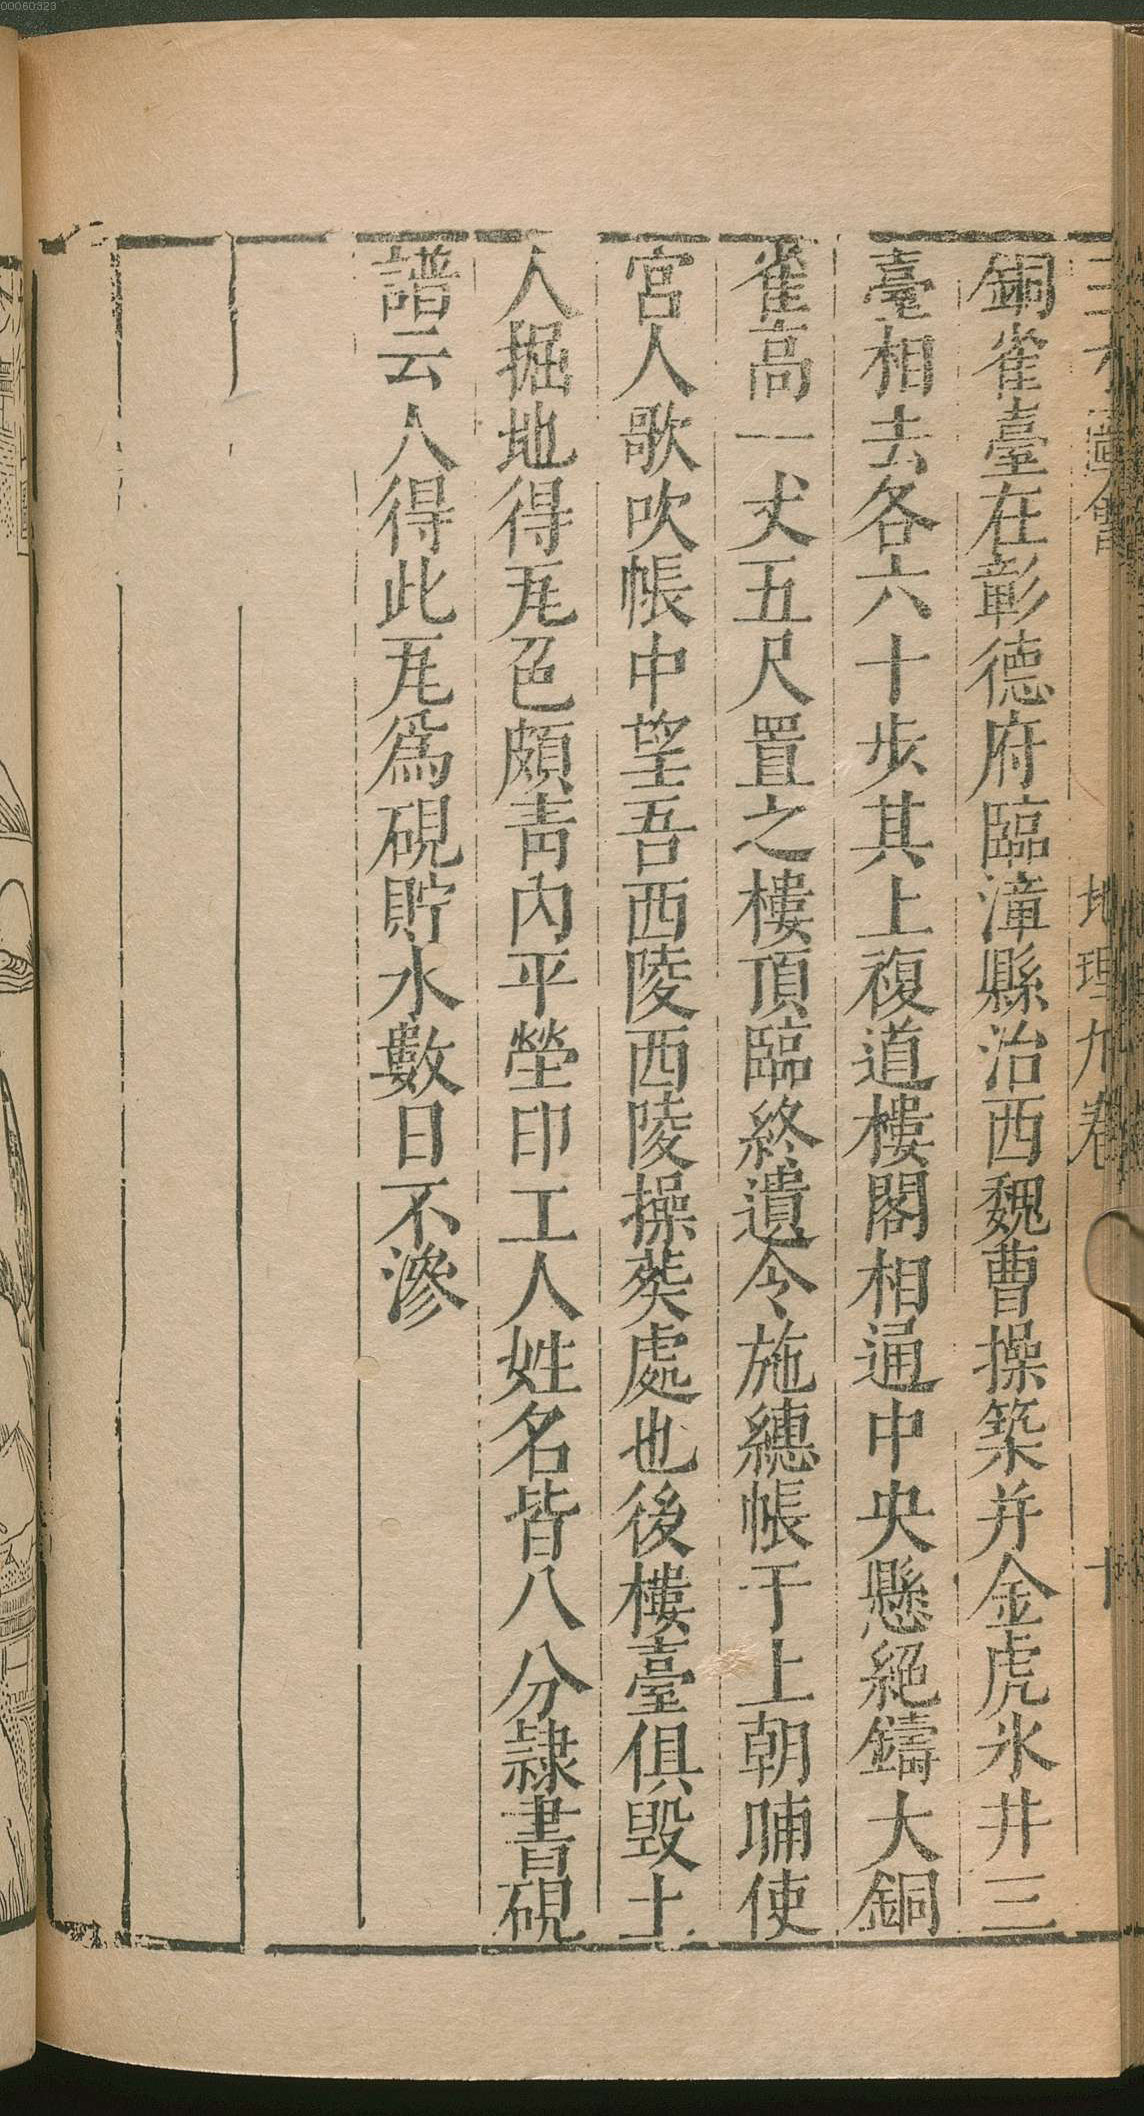 銅雀臺在彰德府臨漳縣治西魏曹操築并金虎氷井三
臺相去各六十歩其上複道樓閣相通中央懸絕鑄大銅
雀高一丈五尺置之樓頂臨終遺令施繐帳于上朝晡使
宮人歌吹帳中望吾西陵西陵操葬處也後樓臺俱毀土
人掘地得瓦色頗青內平瑩印工人姓名皆八分隷書硯
譜云人得此瓦爲硯貯水數日不滲
地理九卷
十
00060323